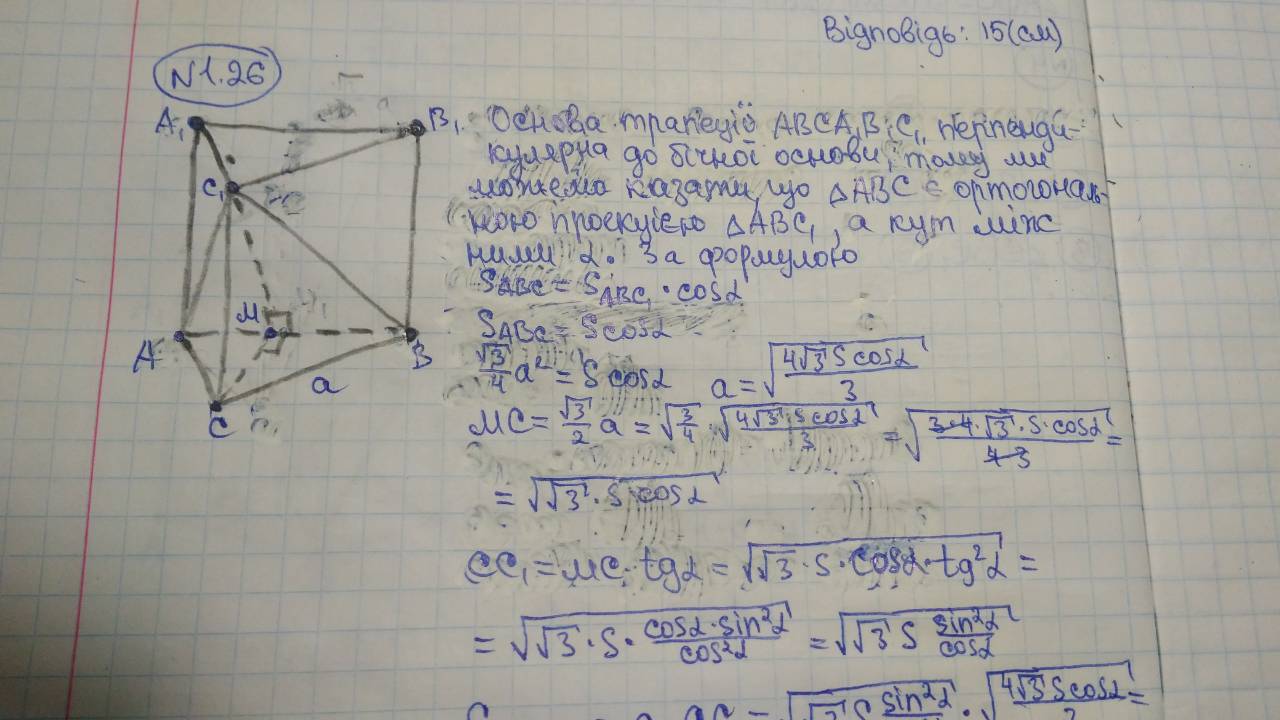 Відповідь: 15(см)
N1.26
A₁
B₁
C₁
M
A
B
C
a
Основа трапеції ABCA₁B₁C₁ перпенди-
кулярна до бічної основи, тому ми
можемо казати, що △ABC є ортогональ-
ною проєкцією △ABC₁, а кут між
ними α. За формулою
S_ABC = S_ABC₁ · cosα
S_ABC = S cosα
√3/4 a² = S cosα   a = √(4√3 S cosα / 3)
MC = √3/2 a = √(3/4) · √(4√3 · S cosα / 3) = √(3·4·√3 · S · cosα / 4·3) =
= √(√3 · S cosα)
CC₁ = MC · tgα = √(√3 · S · cosα · tg²α) =
= √(√3 · S · cosα · sin²α / cos²α) = √(√3 S sin²α / cosα)